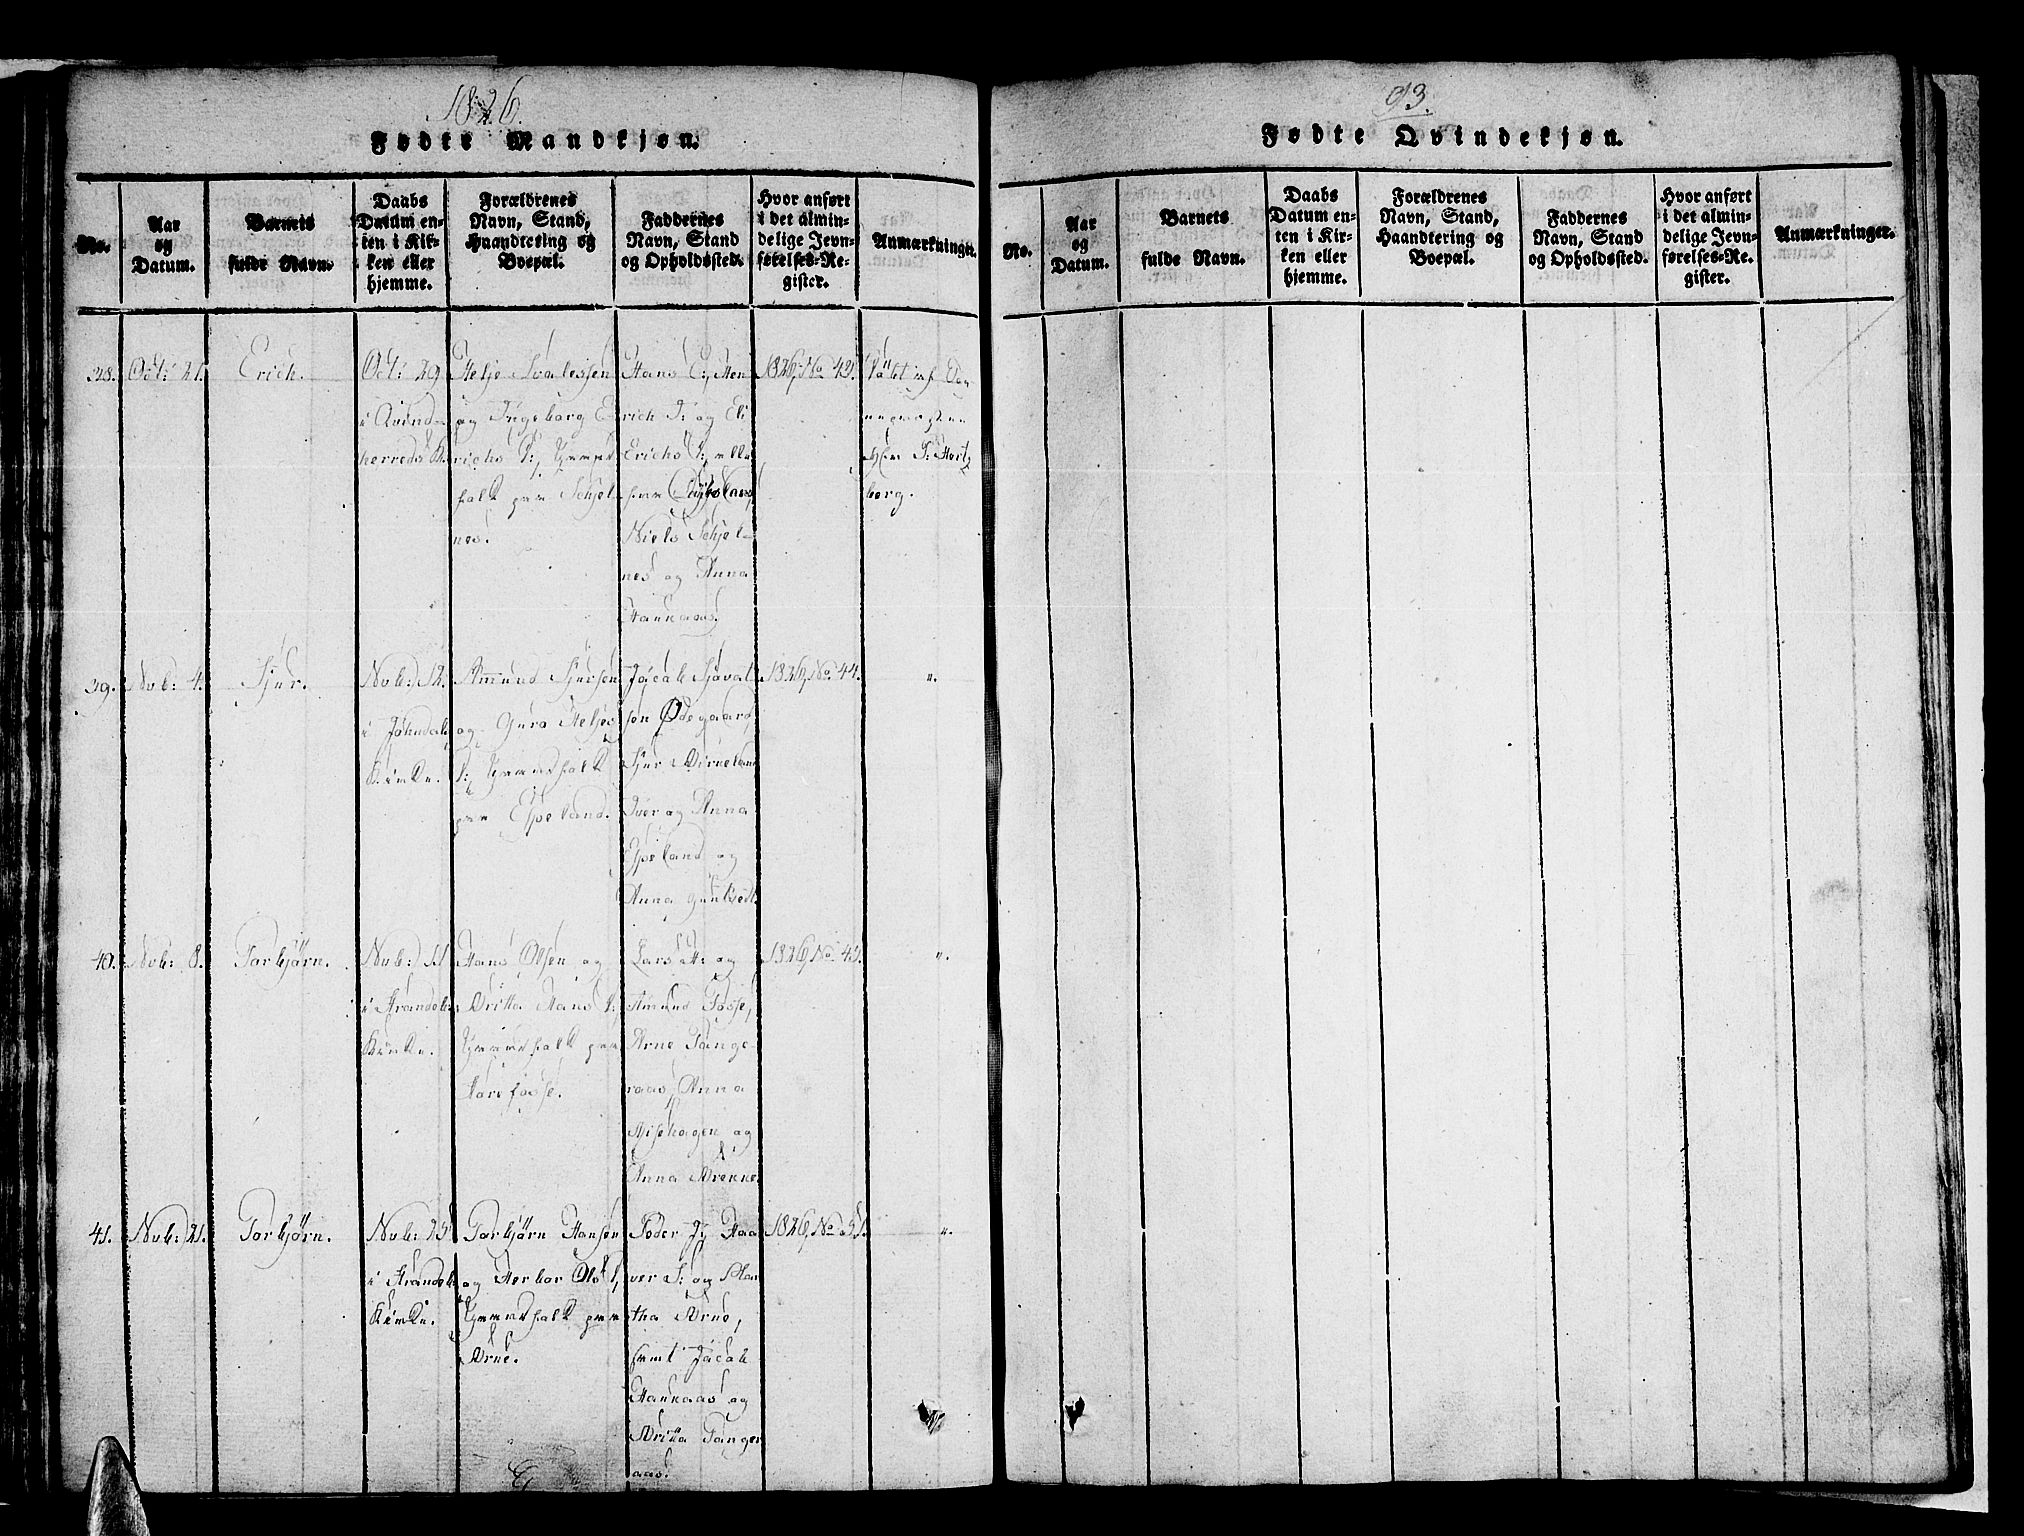 1826.
Fødte Mandkjøn.
No.
Aar og Datum.
Barnets fulde Navn.
Daabs Datum enten i Kirken eller hjemme.
Forældrenes Navn, Stand, Haandtering og Boepæl.
Faddernes Navn, Stand og Opholdssted.
Hvor anført i det almindelige Jevnførelses-Register.
Anmærkninger.
38.
Oct: 21.
Erich.
Oct: 29
i Qvind-
herreds K.
Helje Svalessen
og Ingeborg E
richs D:, Gaard
folk paa Schjel
nes.
Hans E:,
Erich I: og Eli
Erichs D:, alle
Niels Schjel-
nes og Anna
Haukaas.
1826, No 42.
Døbt af
Hr: Hertz
berg.
39.
Nob: 4.
Sjur.
Nob: 12.
i Johndals
Kirke.
Amund Sjursen
og Guro Heljes
D:, Gaardfolk
paa Espeland.
Jacob Sjoval
sen Ødegaard,
Sjur Birneland
Iver og Anna
Espeland og
Anna
1826, No. 44.
"
40.
Nob: 8.
Torbjørn.
Nob: 11
i Strandeb:
Kirke.
Hans Olsen og
Britta Hans D:,
Gaardfolk paa
Torefosse.
Lars H: og
Amund Fosse,
Arne Tange-
raas, Anna
og
Anna Brekke.
1826, No. 45.
"
41.
Nob: 21.
Torbjørn.
Nob: 25
i Strandeb:
Kirke.
Torbjørn Hansen
og Herbor Ols D,
Gaardfolk paa
Brue.
Peder J:, Haa
ver S: og Mar
tha Brue,
samt Jacob
Haukaas og
Britta Tanger
aas.
1826, No 51.
"
93.
Fødte Qvindekjøn.
No.
Aar og Datum.
Barnets fulde Navn.
Daabs Datum enten i Kirken eller hjemme.
Forældrenes Navn, Stand, Haandtering og Boepæl.
Faddernes Navn, Stand og Opholdssted.
Hvor anført i det almindelige Jevnførelses-Register.
Anmærkninger.